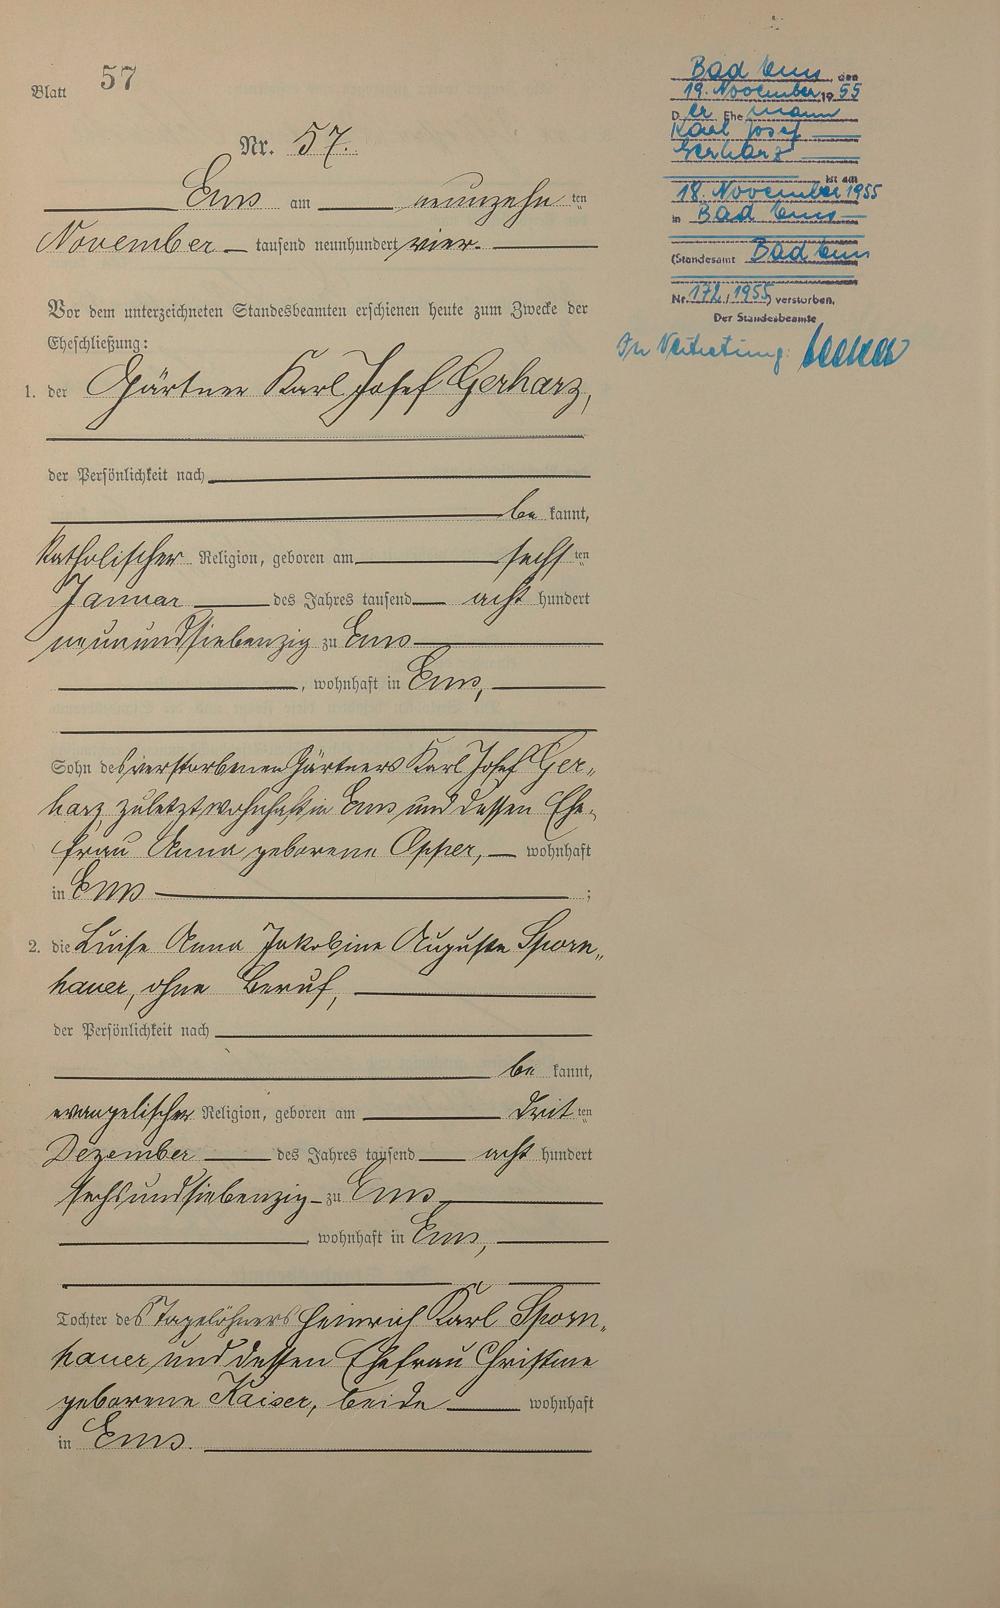 Blatt 57
Nr. 57.
Ems am neunzehnten
November tausend neunhundert vier.
Vor dem unterzeichneten Standesbeamten erschienen heute zum Zwecke der
Eheschließung:
1. der Gärtner Karl Josef Gerharz,
der Persönlichkeit nach
be kannt,
katholischer Religion, geboren am sechsten
Januar des Jahres tausend acht hundert
neunundsiebenzig zu Ems
, wohnhaft in Ems,
Sohn des verstorbenen Gärtners Karl Josef Ger-
harz, zuletzt wohnhaft in Ems und dessen Ehe-
frau Anna geborene Opper, wohnhaft
in Ems ;
2. die Luise Anna Jakobine Auguste Sporn-
hauer, ohne Beruf,
der Persönlichkeit nach
be kannt,
evangelischer Religion, geboren am dritten
Dezember des Jahres tausend acht hundert
sechsundsiebenzig zu Ems
, wohnhaft in Ems,
Tochter des Tagelöhners Heinrich Karl Sporn-
hauer und dessen Ehefrau Christine
geborene Kaiser, beide wohnhaft
in Ems.
Bad Ems, den
19. November 1955
Der Ehemann
Karl Josef
Gerharz
ist am
18. November 1955
in Bad Ems
(Standesamt Bad Ems
Nr. 172/1955) verstorben.
Der Standesbeamte
In Vertretung: